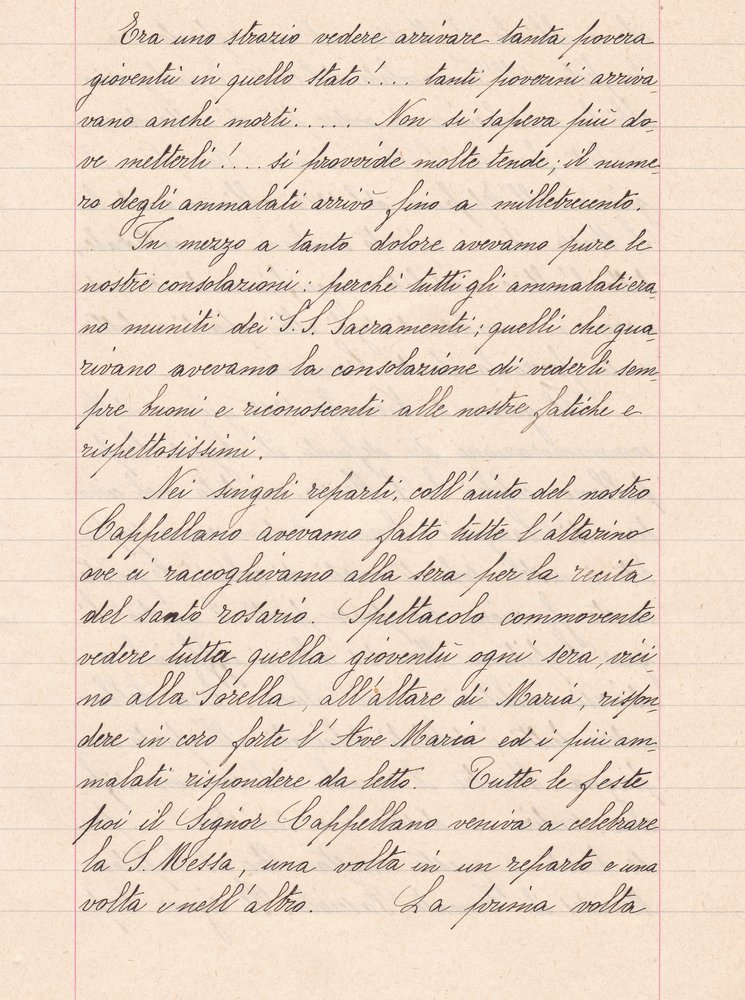 Era uno strazio vedere arrivare tanta povera
gioventù in quello stato!.... tanti poverini arriva-
vano anche morti...... Non si sapeva più do-
ve metterli!... si provvide molte tende; il nume-
ro degli ammalati arrivò fino a milletrecento.
In mezzo a tanto dolore avevamo pure le
nostre consolazioni: perché tutti gli ammalati era-
no muniti dei S.S. Sacramenti; quelli che gua-
rivano avevamo la consolazione di vederli sem-
pre buoni e riconoscenti alle nostre fatiche e
rispettosissimi.
Nei singoli reparti, coll'aiuto del nostro
Cappellano avevamo fatto tutte l'altarino
ove ci raccoglievamo alla sera per la recita
del santo rosario. Spettacolo commovente
vedere tutta quella gioventù ogni sera, vici-
no alla Sorella, all'altare di Maria, rispon-
dere in coro forte l'Ave Maria ed i più am-
malati rispondere da letto. Tutte le feste
poi il Signor Cappellano veniva a celebrare
la S. Messa, una volta in un reparto e una
volta nell'altro. La prima volta